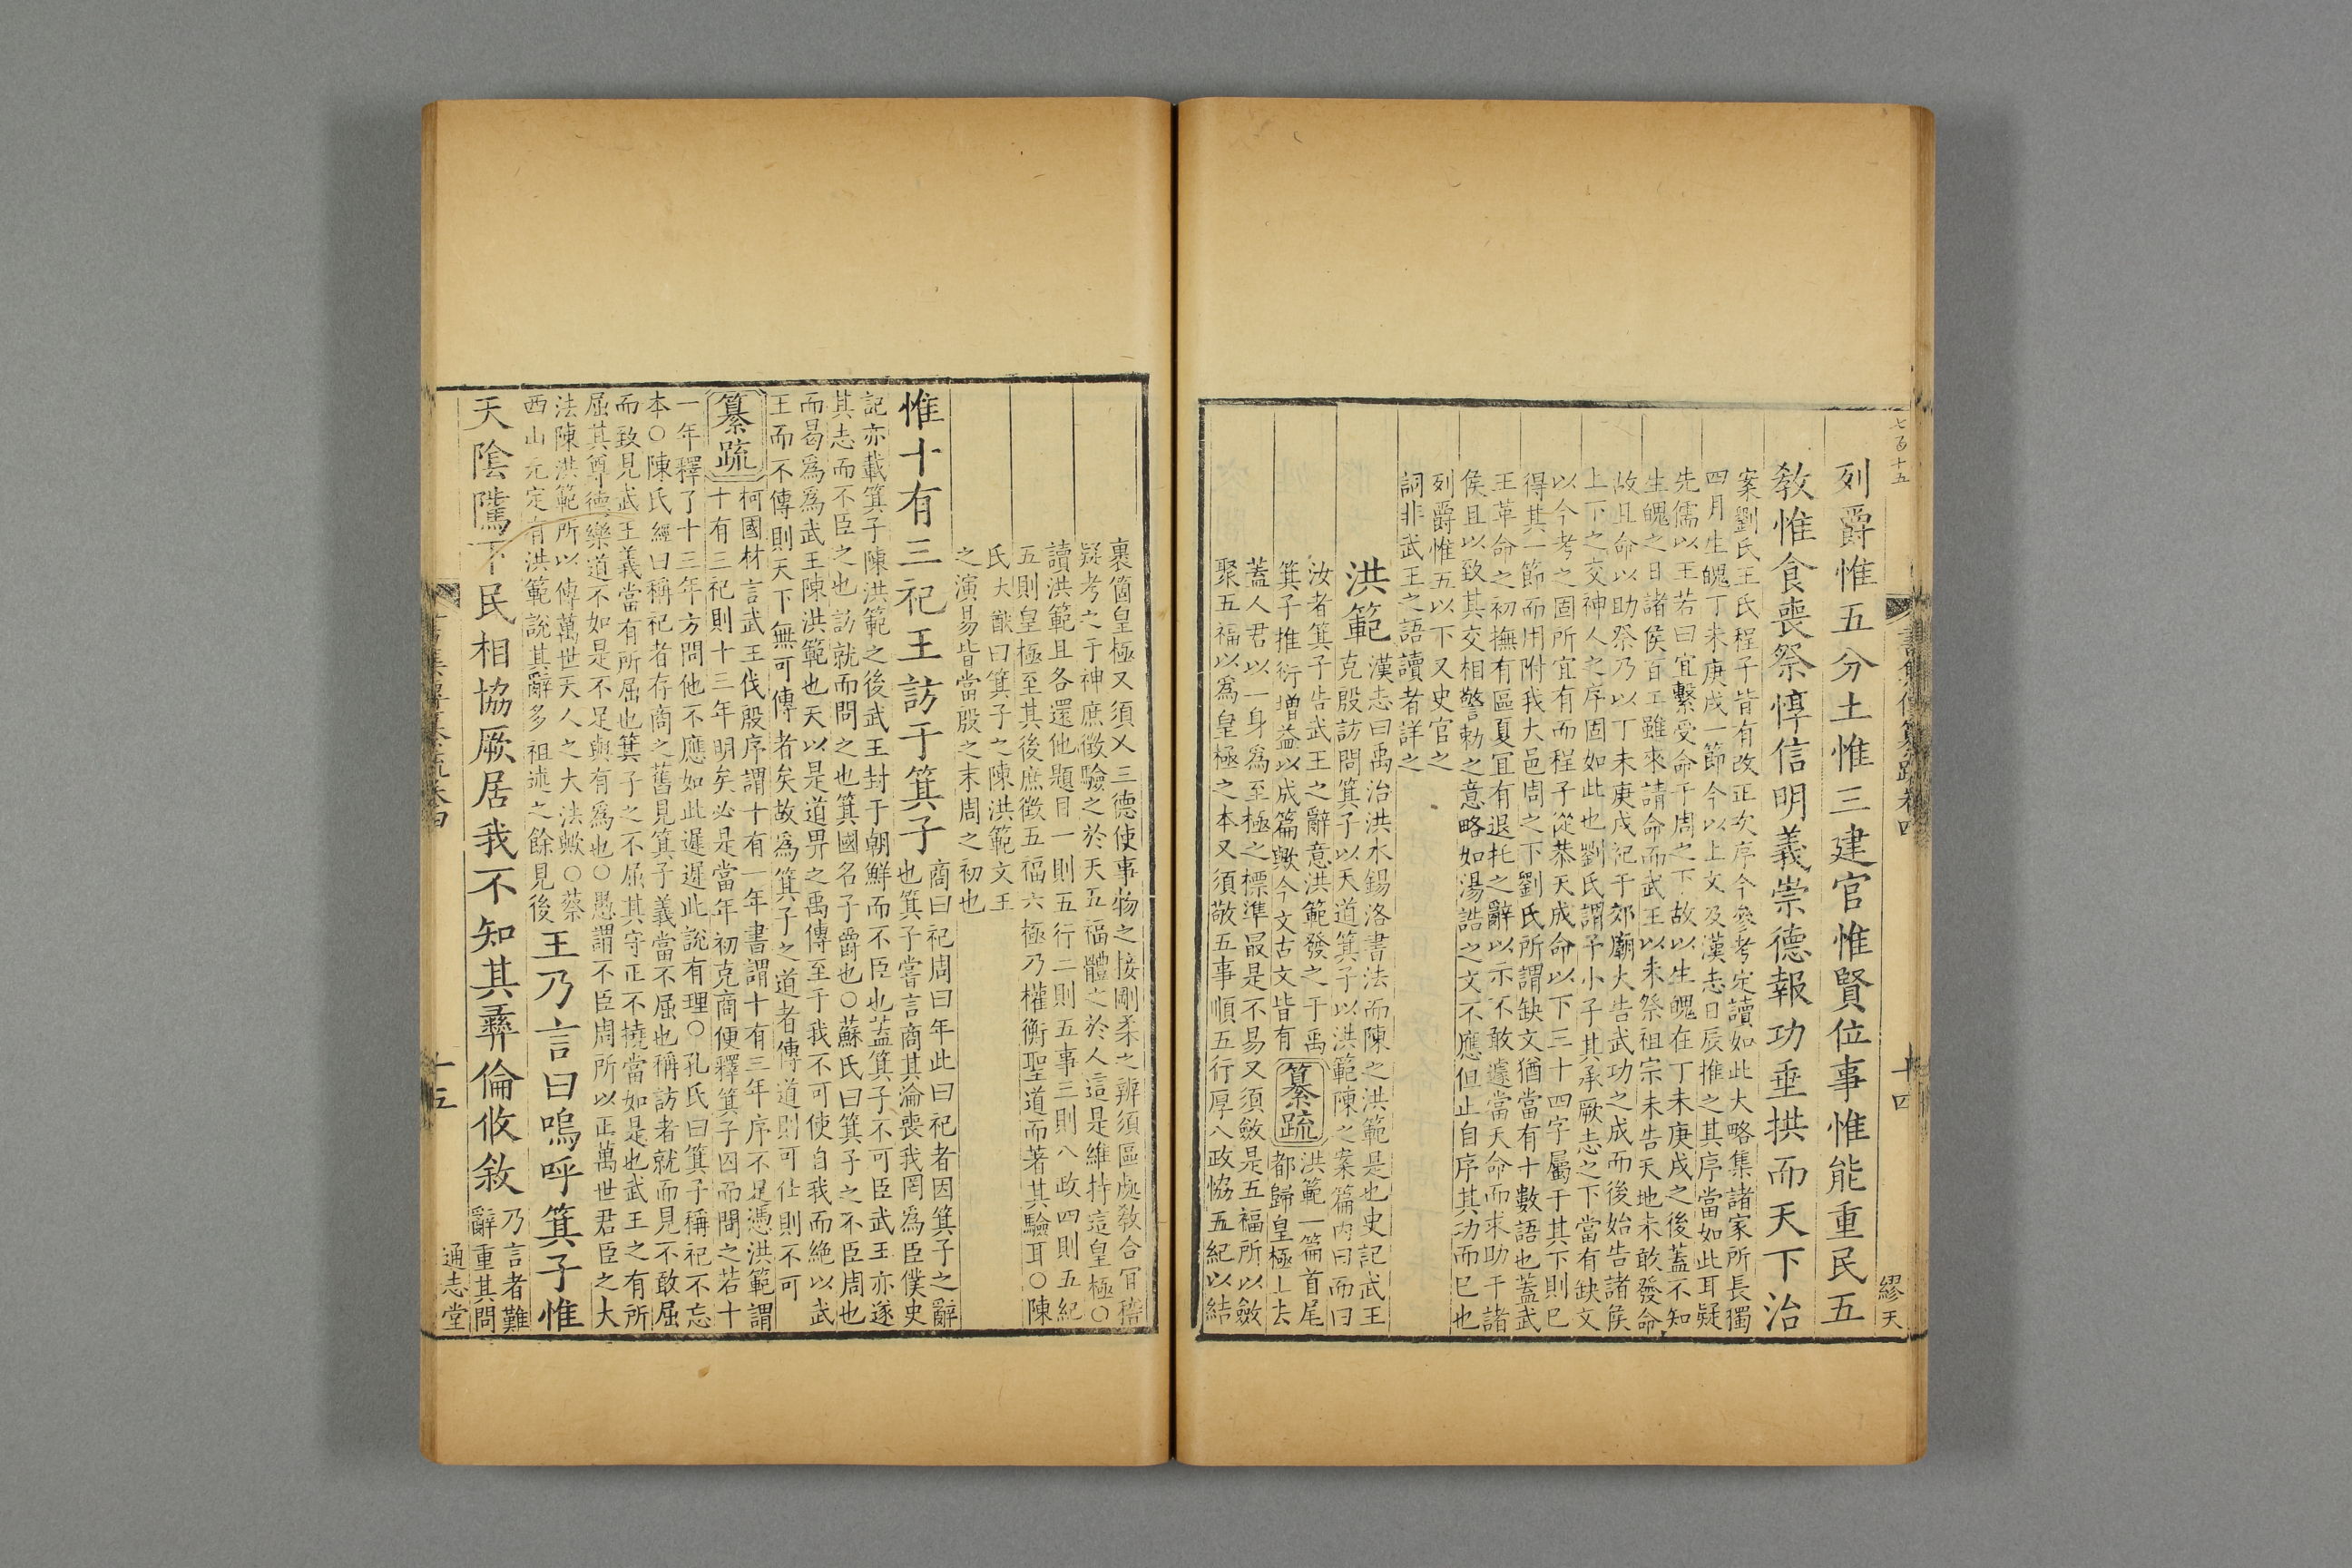 七百十五
書集傳纂疏卷四
十四
繆天
列爵惟五分土惟三建官惟賢位事惟能重民五
敎惟食喪祭惇信明義崇德報功垂拱而天下治
案劉氏王氏程子皆有改正次序今叅考定讀如此大略集諸家所長獨
四月生魄丁未庚戌一節今以上文及漢志日辰推之其序當如此耳疑
先儒以王若曰宜繫受命于周之下故以生魄在丁未庚戌之後蓋不知
生魄之日諸侯百工雖來請命而武王以未祭祖宗未告天地未敢發命
故且命以助祭乃以丁未庚戌祀于郊廟大告武功之成而後始告諸侯
上下之交神人之序固如此也劉氏謂予小子其承厥志之下當有缺文
以今考之固所宜有而程子從恭天成命以下三十四字屬于其下則已
得其一節而用附我大邑周之下劉氏所謂缺文猶當有十數語也蓋武
王革命之初撫有區夏宜有退托之辭以示不敢遽當天命而求助于諸
侯且以致其交相警勅之意略如湯誥之文不應但止自序其功而已也
列爵惟五以下又史官之
詞非武王之語讀者詳之
洪範
漢志曰禹治洪水錫洛書法而陳之洪範是也史記武王
克殷訪問箕子以天道箕子以洪範陳之案篇内曰而曰
汝者箕子告武王之辭意洪範發之于禹
箕子推衍增益以成篇歟今文古文皆有
纂疏
洪範一篇首尾
都歸皇極上去
蓋人君以一身爲至極之標準最是不易又須斂是五福所以斂
聚五福以爲皇極之本又須敬五事順五行厚八政恊五紀以結
裹箇皇極又須乂三德使事物之接剛柔之辨須區處敎合冝稽
疑考之于神庶徵驗之於天五福體之於人這是維持這皇極○
讀洪範且各還他題目一則五行二則五事三則八政四則五紀
五則皇極至其後庶徵五福六極乃權衡聖道而著其驗耳○陳
氏大猷曰箕子之陳洪範文王
之演易皆當殷之末周之初也
惟十有三祀王訪于箕子
商曰祀周曰年此曰祀者因箕子之辭
也箕子嘗言商其淪喪我罔爲臣僕史
記亦載箕子陳洪範之後武王封于朝鮮而不臣也蓋箕子不可臣武王亦遂
其志而不臣之也訪就而問之也箕國名子爵也○蘇氏曰箕子之不臣周也
而曷爲爲武王陳洪範也天以是道畀之禹傳至于我不可使自我而絶以武
王而不傳則天下無可傳者矣故爲箕子之道者傳道則可仕則不可
纂疏
柯國材言武王伐殷序謂十有一年書謂十有三年序不足憑洪範謂
十有三祀則十三年明矣必是當年初克商便釋箕子囚而問之若十
一年釋了十三年方問他不應如此遲遲此說有理○孔氏曰箕子稱祀不忘
本○陳氏經曰稱祀者存商之舊見箕子義當不屈也稱訪者就而見不敢屈
而致見武王義當有所屈也箕子之不屈其守正不撓當如是也武王之有所
屈其尊德樂道不如是不足與有爲也○愚謂不臣周所以正萬世君臣之大
法陳洪範所以傳萬世天人之大法歟○蔡
西山元定有洪範說其辭多祖述之餘見後
王乃言曰嗚呼箕子惟
天陰騭下民相協厥居我不知其彝倫攸敘
乃言者難
辭重其問
十五
通志堂